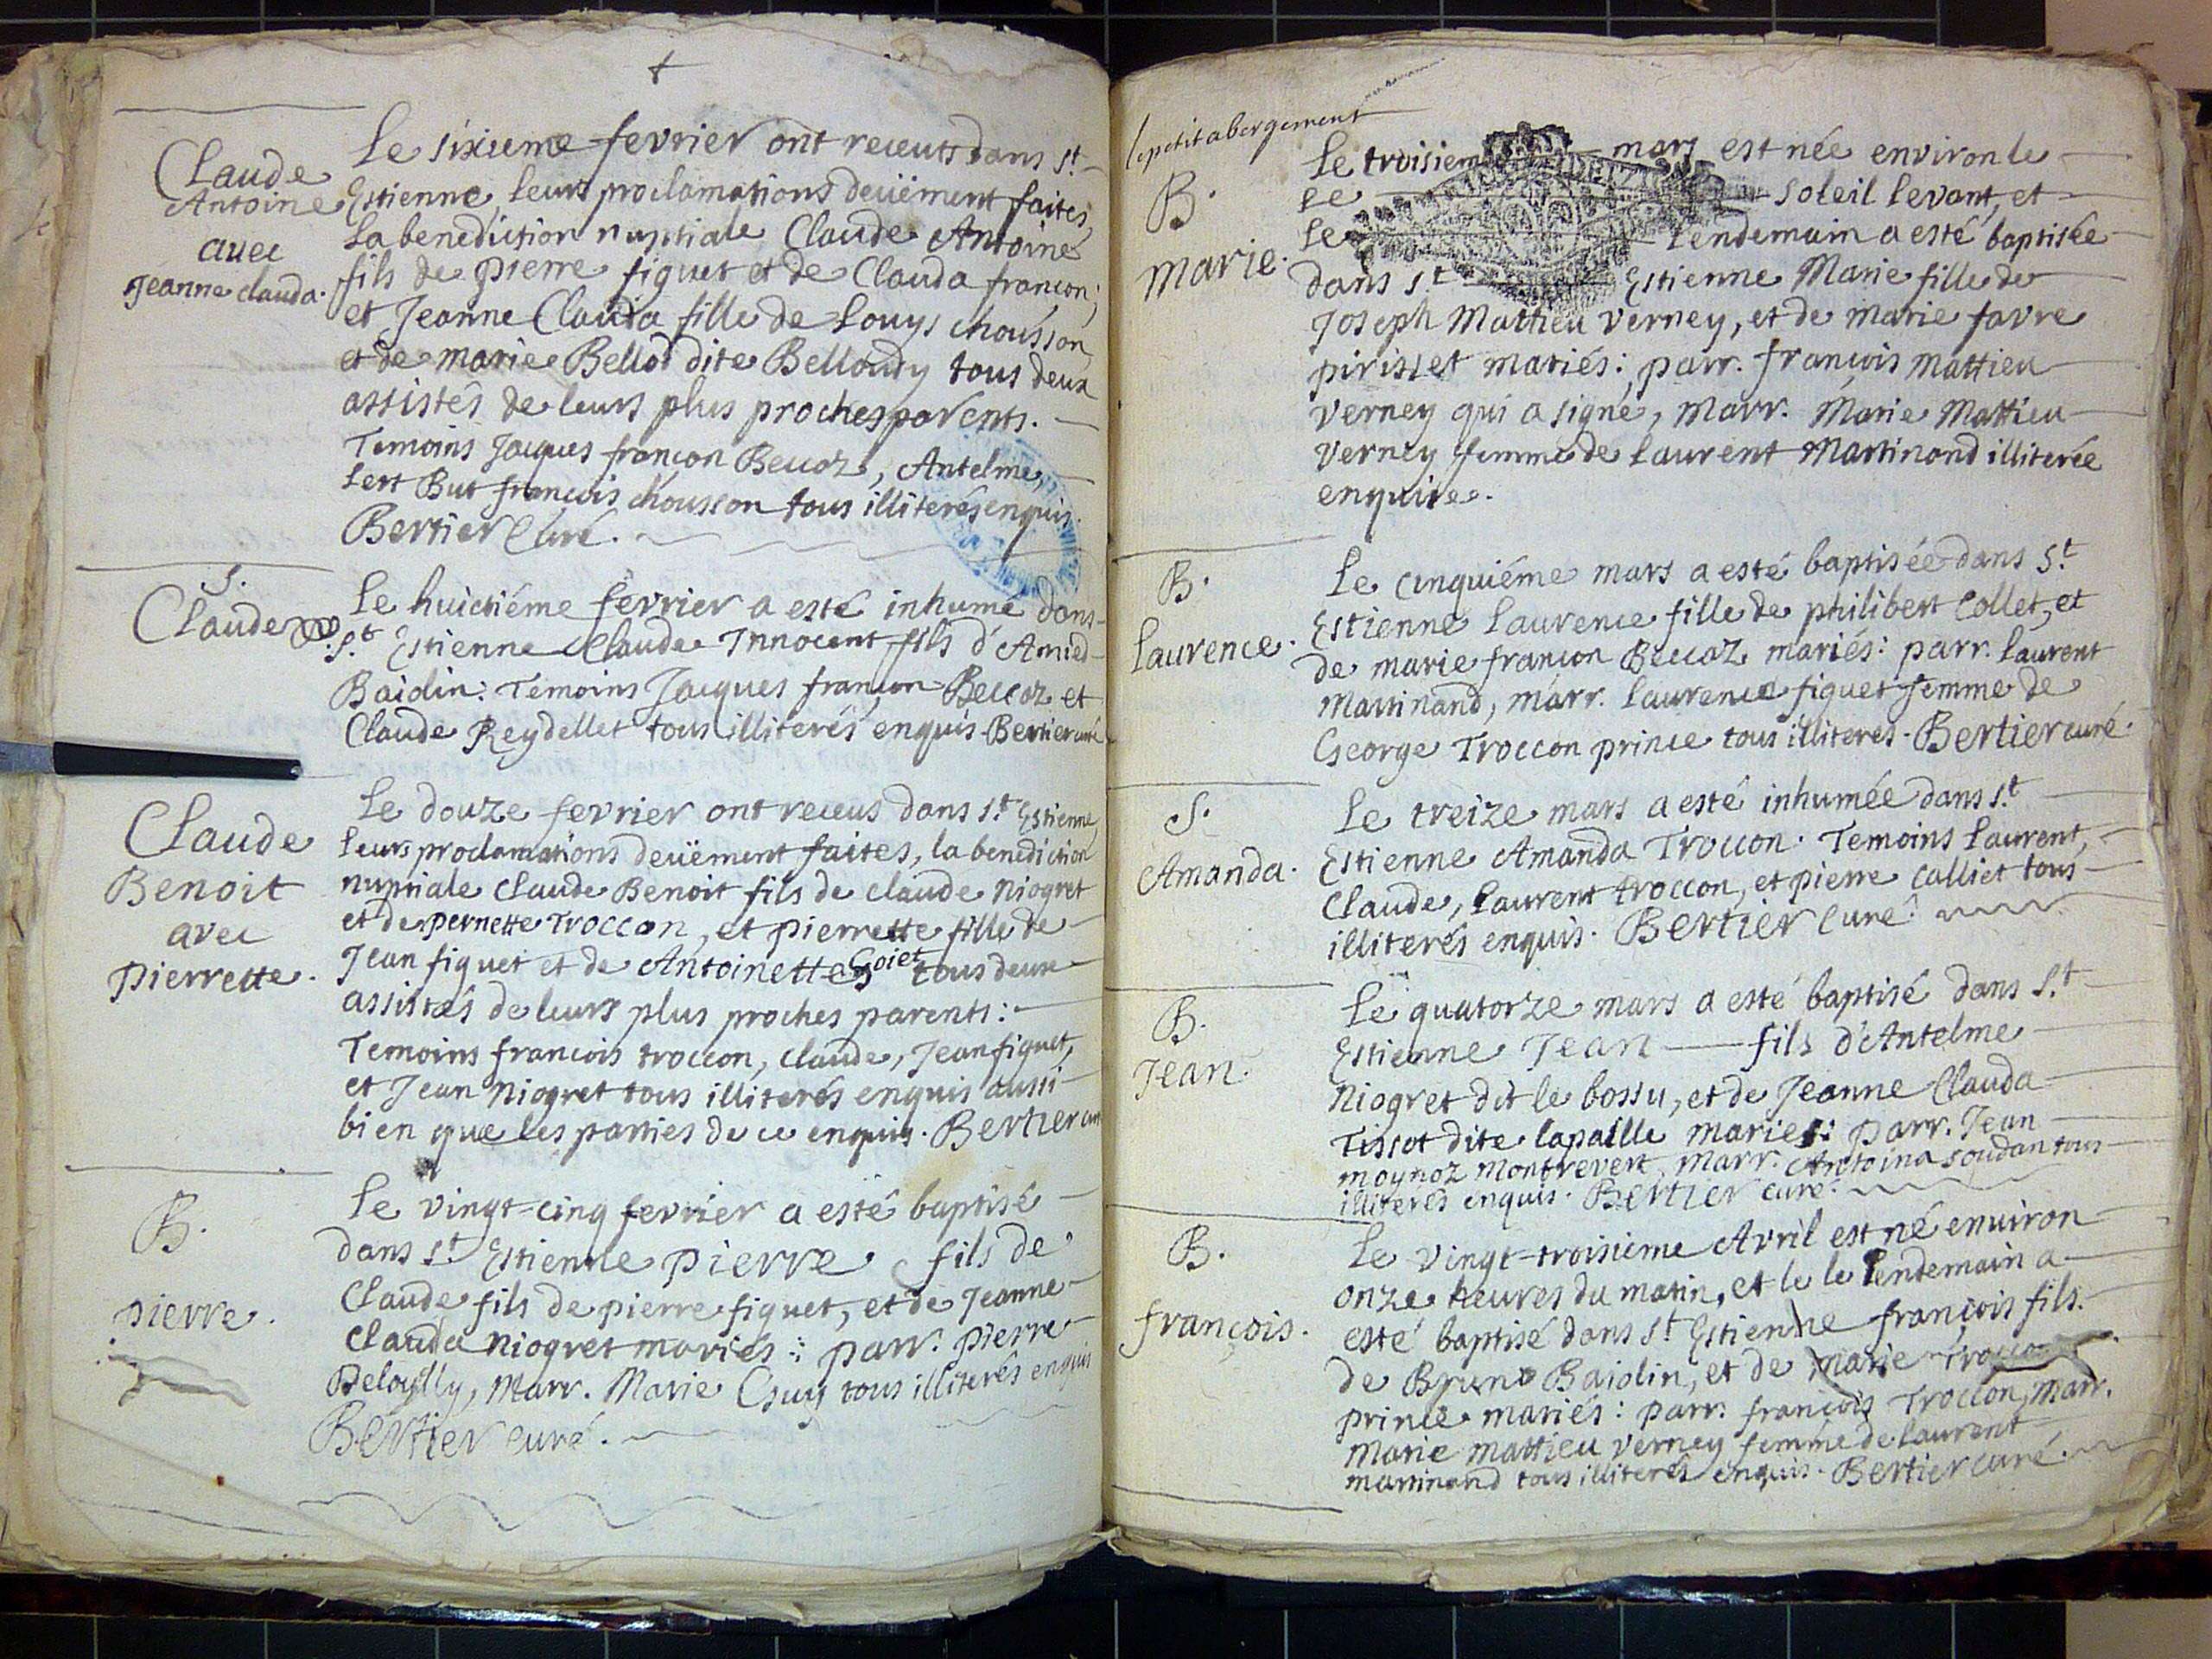 Claude
Antoine
avec
Jeanne clauda.
Le sixieme fevrier ont receuts dans st
Estienne, leurs proclamations deuëment faites,
la benediction nuptiale Claude Antoine
fils de pierre figuet et de Clauda françon;
et Jeanne Clauda fille de Louys chousson
et de marie Bellod dite Belloudy tous deux
assistés de leurs plus proches parents.
Temoins Jacques françon Beccoz, Antelme,
françois chousson tous illiterés enquis.
Bertier Curé.
S.
Claude
Le huictiéme fevrier a esté inhumé dans
St Estienne Claude Innocent fils d'Amed
Baidin: Temoins Jacques françon Beccoz et
Claude Reydellet tous illiterés enquis. Bertier curé
Claude
Benoit
avec
pierrette.
Le douze fevrier ont receus dans St Estienne,
leurs proclamations deüement faites, la benediction
nuptiale Claude Benoit fils de claude niogret
et de pernette Troccon, et pierrette fille de
Jean figuet et de Antoinette Goiet tous deux
assistés de leurs plus proches parents:
Temoins francois troccon, claude, Jean figuet,
et Jean niogret tous illiterés enquis aussi
bien que les parties de ce enquis. Bertier curé
B.
pierre.
Le vingt-cinq fevrier a esté baptisé
dans St Estienne pierre fils de
Claude fils de pierre figuet, et de Jeanne
Clauda niogret mariés: parr. pierre
Deloylly, Marr. Marie Guy tous illiterés enquis
Bertier curé.
le petit abergement
B.
marie.
Le troisieme mars est née environ le
le soleil levant, et
le lendemain a esté baptisée
dans St Estienne Marie fille de
Joseph Mattieu verney, et de marie favre
pirisset mariés: parr. françois Mattieu
verney qui a signé, Marr. Marie Mattieu
verney femme de Laurent Martinond illiterée
enquise.
B.
Laurence.
Le cinquiéme mars a esté baptisée dans St
Estienne Laurence fille de philibert Collet, et
de marie françon Beccoz mariés: parr. laurent
Martinand, marr. laurence figuet femme de
George Troccon prince tous illiteres. Bertier curé.
S.
Amanda.
Le treize mars a esté inhumée dans St
Estienne Amanda Troccon. Temoins Laurent,
Claude, Laurent troccon, et pierre Calliet tous
illiterés enquis. Bertier Curé.
B.
Jean.
Le quatorze mars a esté baptisé dans St
Estienne Jean fils d'Antelme
Niogret dit le bossu, et de Jeanne Clauda
Tissot dite lapaille mariés: parr. Jean
moynoz montrevert, marr. Antoina soudan tous
illiterés enquis. Bertier curé.
B.
françois.
Le vingt-troisieme Avril est né environ
onze heures du matin, et le le lendemain a
esté baptisé dans St Estienne françois fils
de Bruno Baidin, et de marie troccon
prince mariés: parr. françois Troccon, marr.
Marie mattieu verney femme de laurent
martinand tous illiterés enquis. Bertier curé.